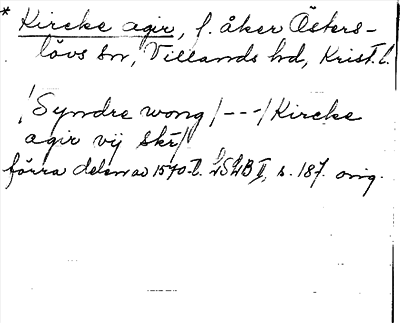 * Kircke agir, f. åker Östers-
lövs sn, Villands hd, Krist. l.
/Syndre wong/---/Kircke
agir vij skr/
förra delen av 1570-t. LSLB II, s. 187. orig.